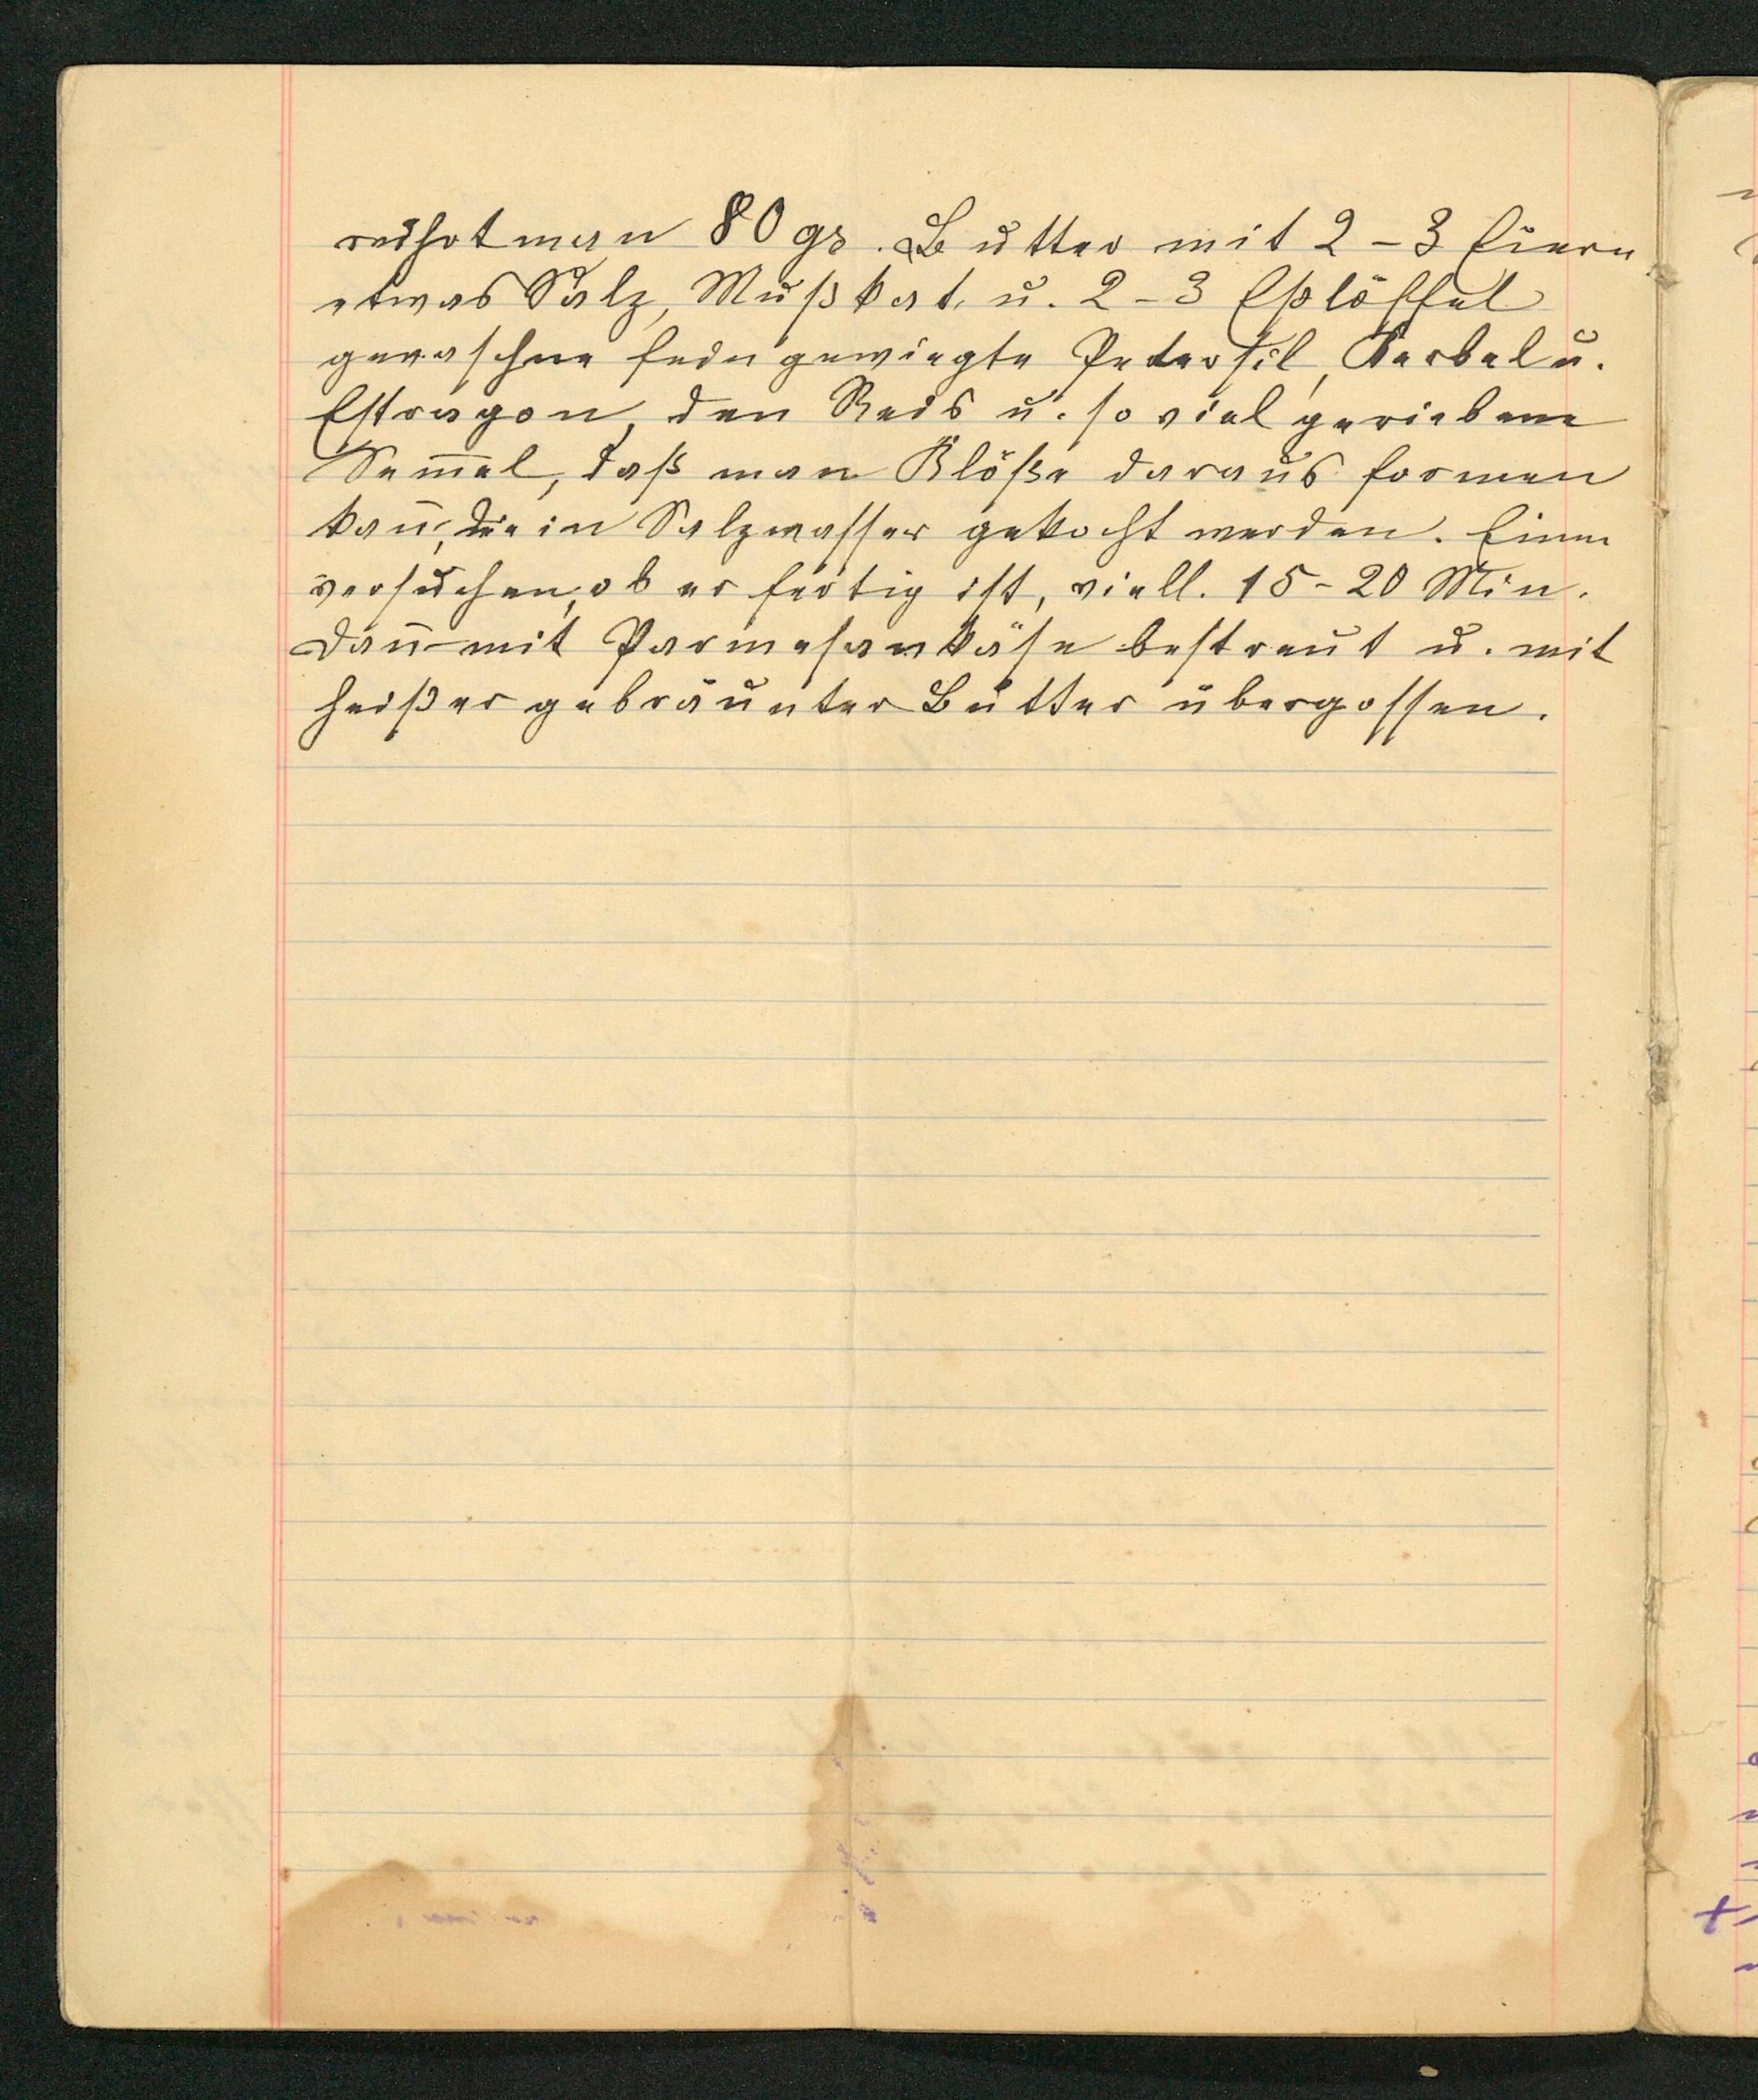 rührt man 80 gr. Butter mit 2-3 Eiern
etwas Salz, Mußkat, u. 2-3 Eßlöffel
gewaschne fein gewiegte Petersil, Kerbel u.
Estragon, den Reis u. so viel geriebene
Sem̄el, daß man Klöße daraus formen
kan̄, die in Salzwasser gekocht werden. Einen
versuchen, ob er fertig ist, viell. 15-20 Min.
Dan̄ mit Parmesankäse bestreut u. mit
heißer gebräunter Butter übergossen.